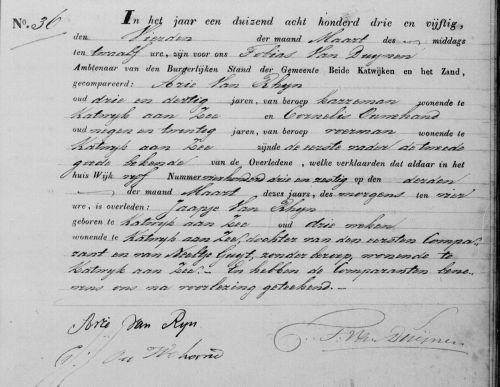 No. 36 In het jaar een duizend acht honderd drie en vijftig,
den Vierden der maand Maart des middags
ten twaalf ure, zijn voor ons Tobias Van Duijnen
Ambtenaar van den Burgerlijken Stand der Gemeente Beide Katwijken en het Zand,
gecompareerd: Arie Van Rhyn
oud drie en dertig jaren, van beroep wonende te
Katwyk aan Zee en Cornelis
oud negen en twentig jaren, van beroep wonende te
Katwyk aan Zee zijnde de eerste vader de tweede
goede bekende van de Overledene, welke verklaarden dat aldaar in het
huis Wijk vyf Nummer vierhonderd drie en zestig op den derden
der maand Maart dezes jaars, des morgens ten vier
ure, is overleden: Jaapje Van Rhyn
geboren te Katwyk aan Zee oud drie weken
wonende te Katwyk aan Zee, dochter van den eersten Compa-
rant en van Neeltje Guyt, zonder beroep, wonende te
Katwyk aan Zee. En hebben de Comparanten bene-
vens ons na voorlezing geteekend.
Arie van Ryn
T. Van Duijnen